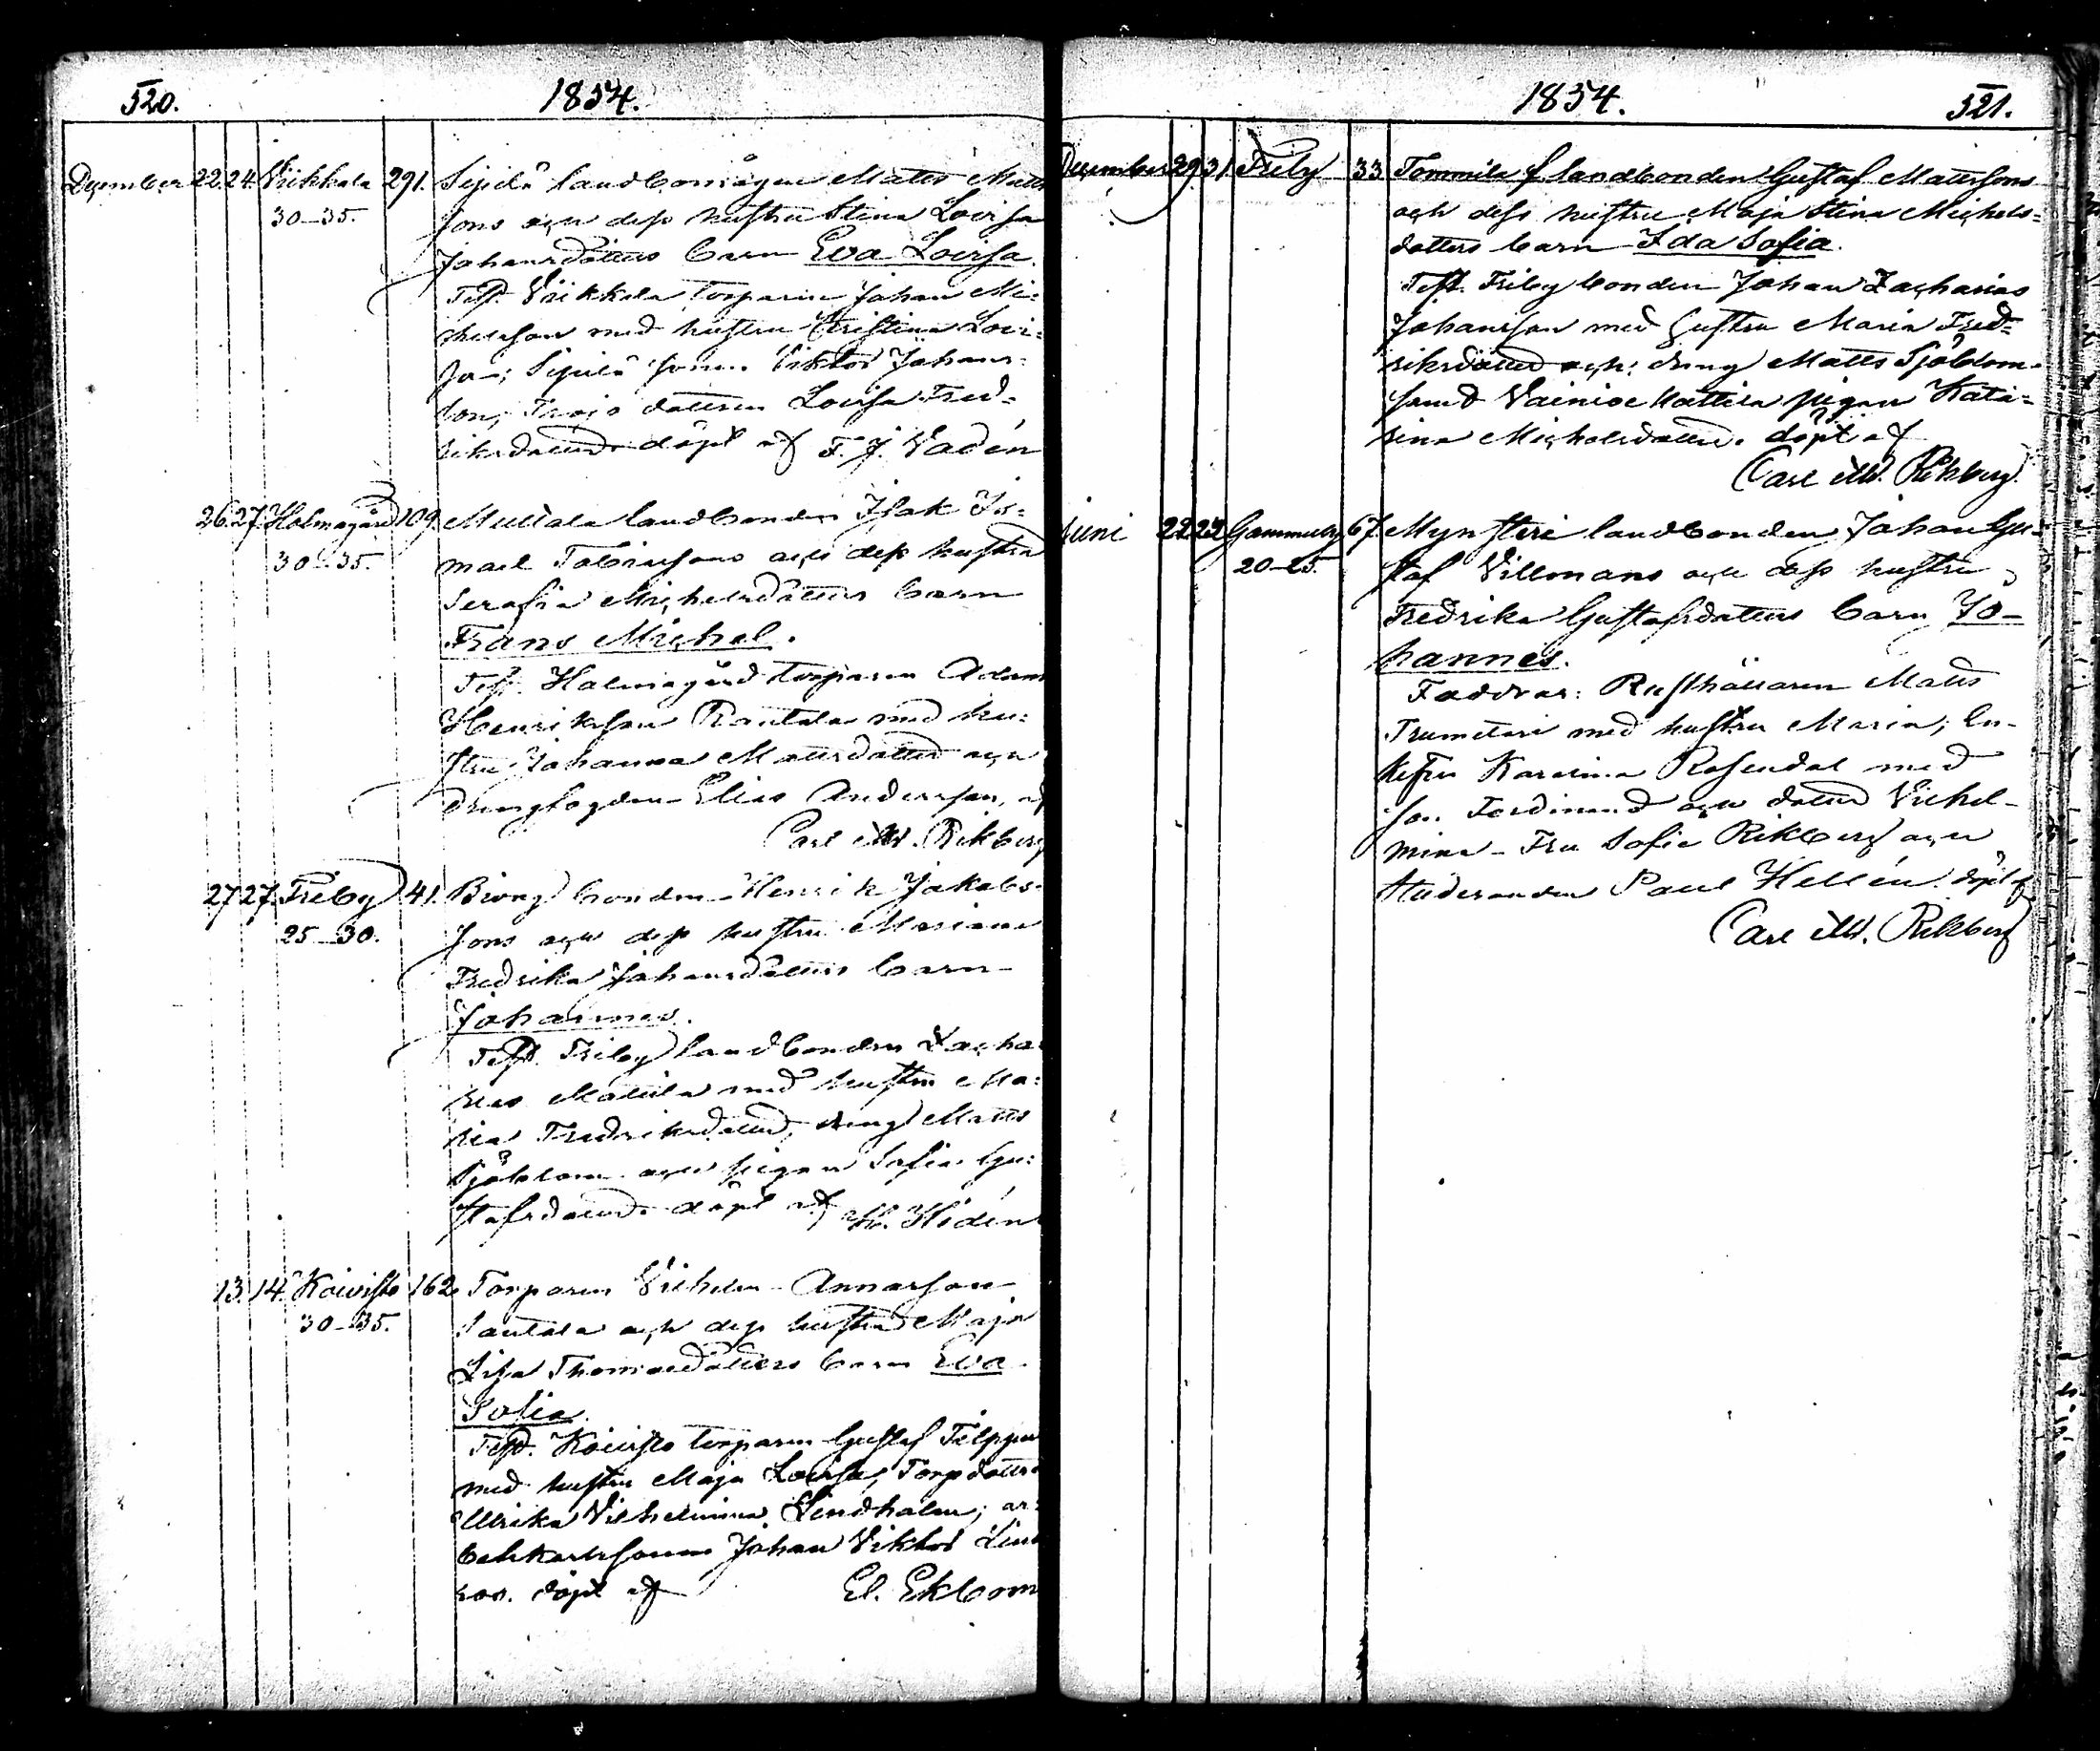 520. 1854.
December 22. 24. Viikkala 291. Sipilä landbomågen Matts Matts
30-35. sons och dess hustru Stina Lovisa
Johansdotters barn Eva Lovisa.
Test. Viikkala torparen Johan Mi-
chelsson med hustru Christina Lovi-
sa; Sipilä sonen Viktor Johans-
son, dottren Lovisa Fred-
riksdotter. döpt af F. J. Vadén
26. 27. Halmagård 109. landbonden Isak Is-
30-35. mael Tobiassons och dess hustru
Serafia Michelsdotters barn
Frans Michel.
Test. Halmagård torparen Adam
Henriksson Rautala med hu-
stru Johanna Mattsdotter och
drengfogden Elias Andersson, af
Carl M. Rikberg
27. 27. Friby 41. bonden Henrik Jakobs-
25-30. sons och dess hustru Mariana
Fredrika Johansdotters barn
Johannes.
Test. Friby landbonden Zacha-
rias Mattila med hustru Ma-
ria Fredriksdotter, dreng Matts
Sjöblom och pigan Sofia Gu-
stafsdotter. döpt af Hidén
13. 14. Koivisto 162. Torparen Vilhelm Annasson
30-35. och dess hustru Maja
Lisa Thomasdotters barn Eva
Sofia.
Test. Koivisto torparen Gustaf Filppu
med hustru Maja Lovisa; Torpdottren
Ulrika Vilhelmina Lindholm; ar-
betskarlssonen Johan Viktor Lind
roos. döpt af El. Ekbom
1854. 521.
December 29. 31. Friby 33 Tommila landbonden Gustaf Mattssons
och dess hustru Maja Stina Michels-
dotters barn Ida Sofia.
Test. Friby bonden Johan Zacharias
Johansson med hustru Maria Fred-
riksdotter och dreng Matts Sjöblom
samt Vainio Mattila pigan Kata-
rina Michelsdotter. döpt af
Carl M. Rikberg.
Juni 22. 24 Gammelby 67. Mynsteri landbonden Johan Gu-
20-25. staf Villmans och dess hustru
Fredrika Gustafsdotters barn Jo-
hannes.
Faddrar: Rusthållaren Matts
Trumetari med hustru Maria; En-
kefru Karolina Rosendal med
son Ferdinand och dotter Vilhel-
mina - Fru Sofie Rikberg och
studeranden Paul Hellén. döpt af
Carl M. Rikberg